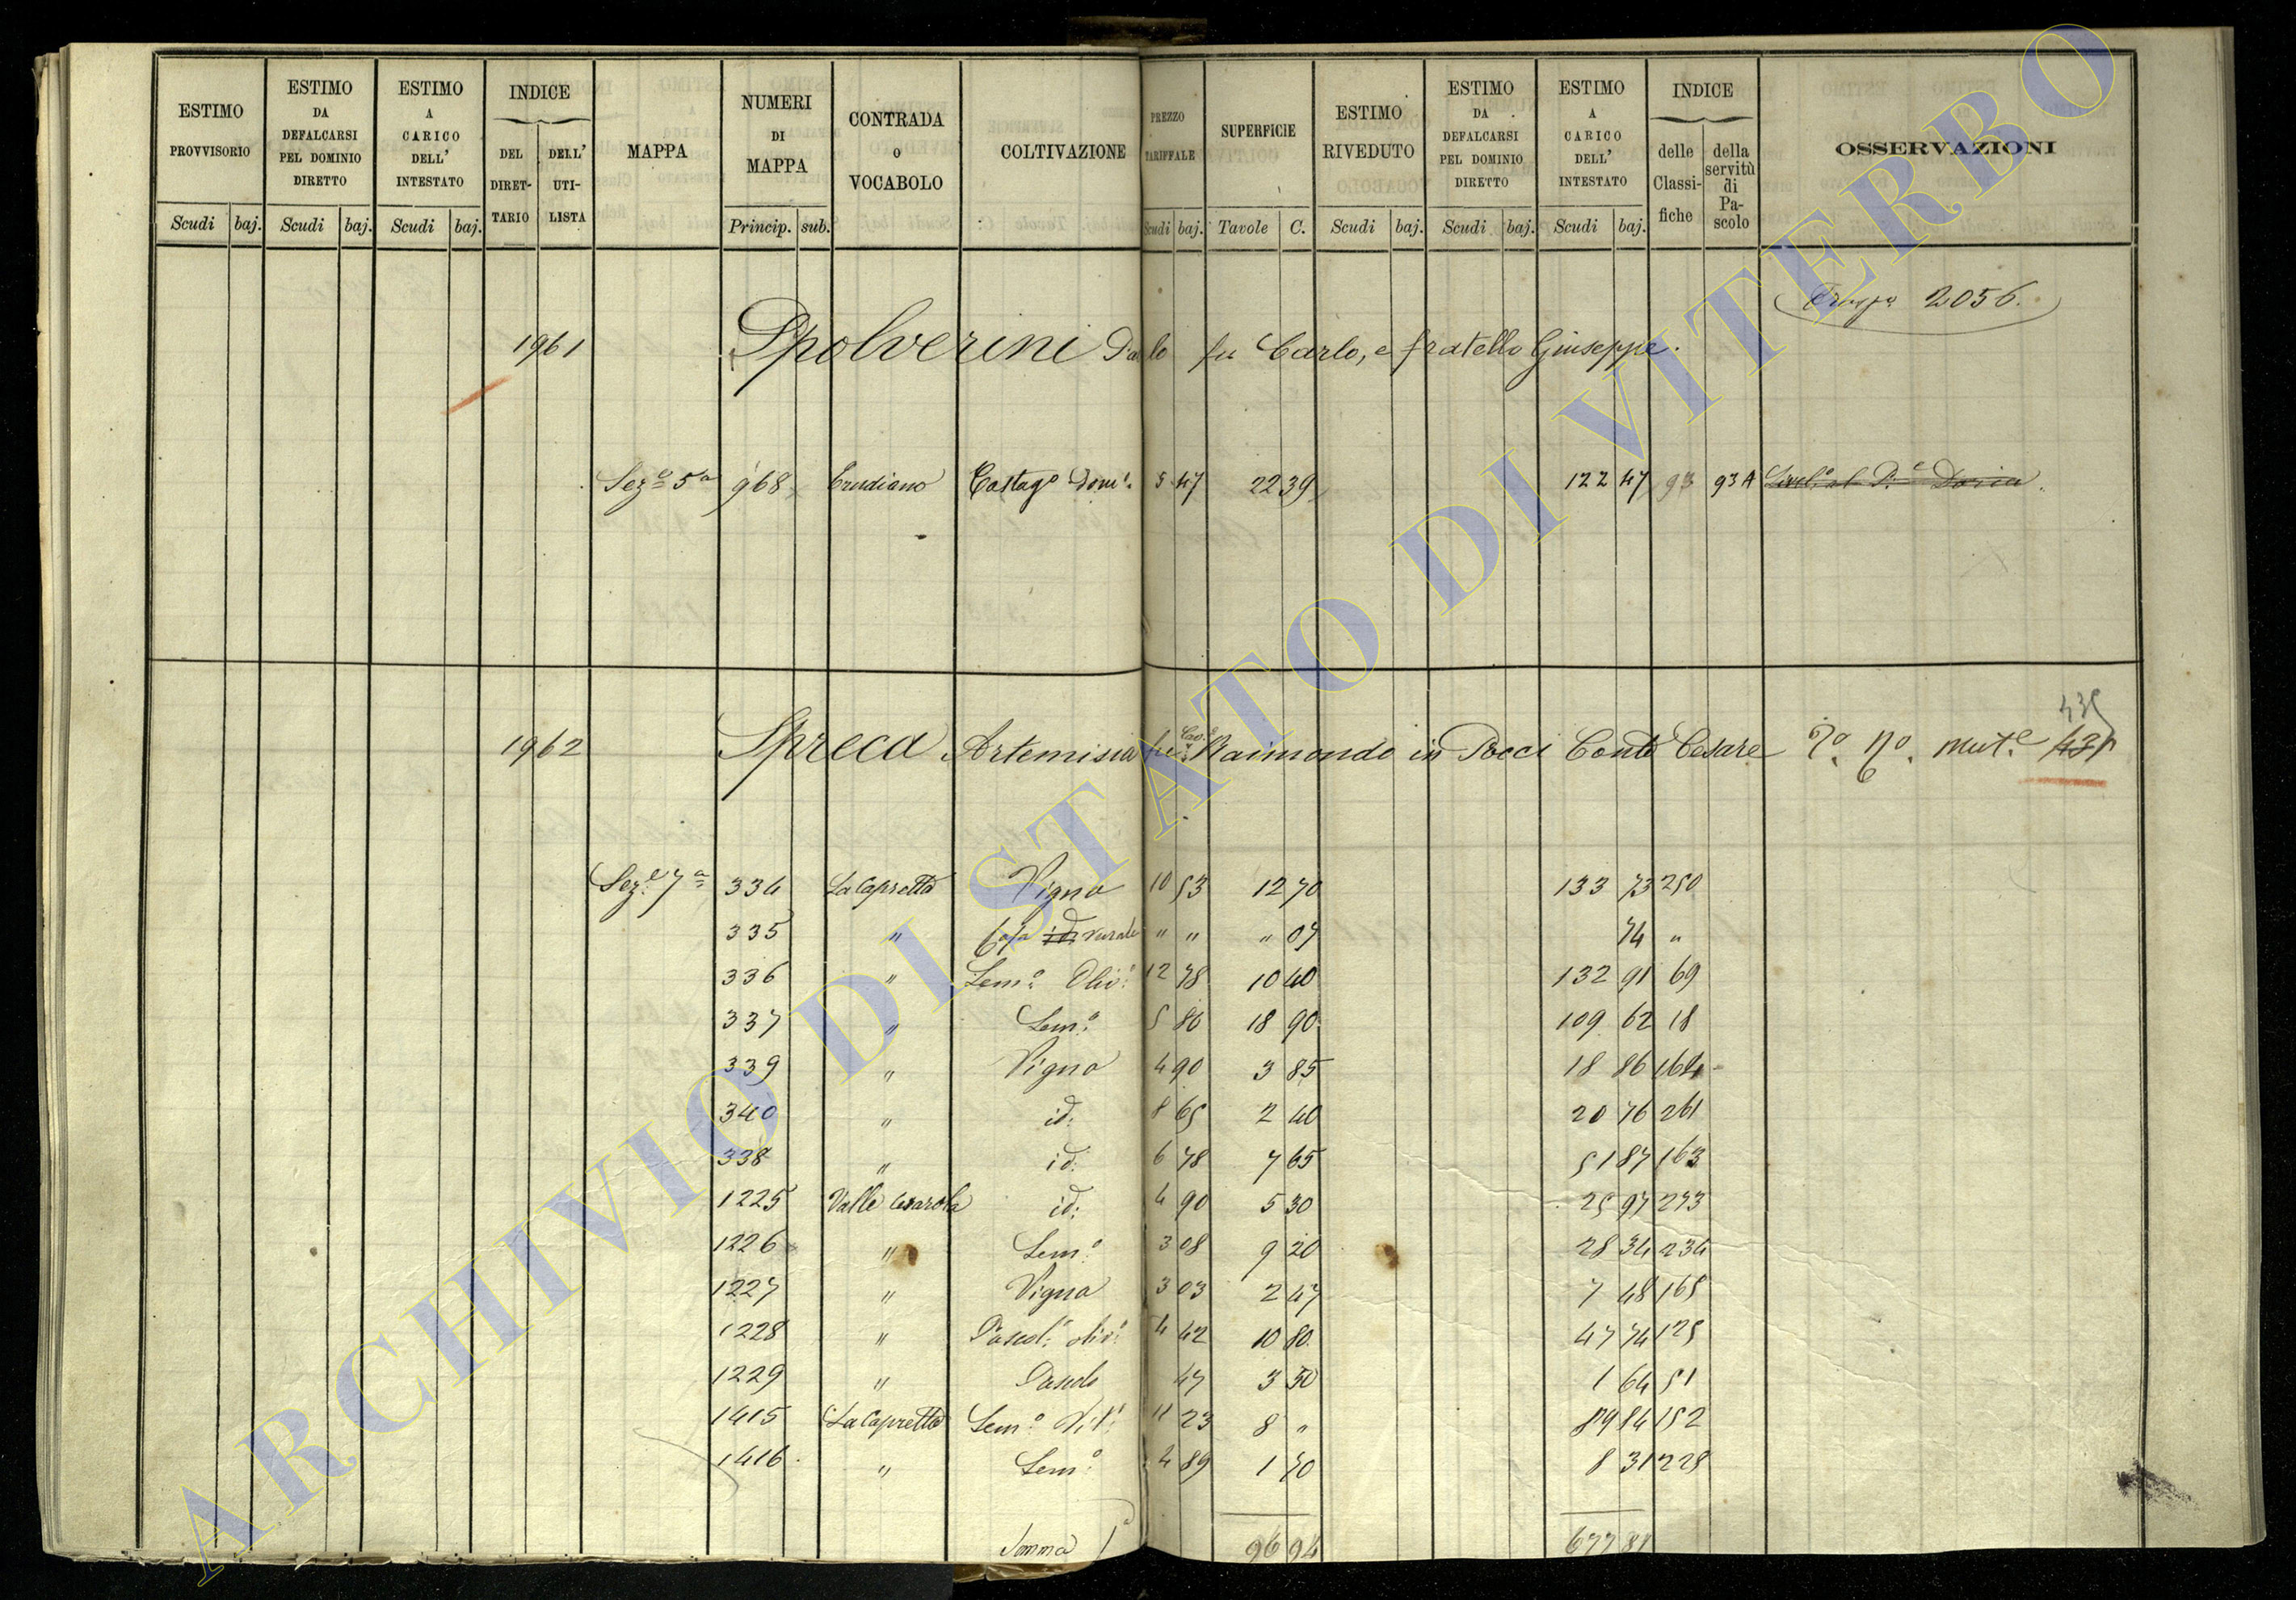 ESTIMO PROVVISORIO | ESTIMO DA DEFALCARSI PEL DOMINIO DIRETTO | ESTIMO A CARICO DELL' INTESTATO | INDICE DEL DIRETTARIO | DELL' UTILISTA | MAPPA | NUMERI DI MAPPA | CONTRADA O VOCABOLO | COLTIVAZIONE | PREZZO TARIFFALE | SUPERFICIE | ESTIMO RIVEDUTO | ESTIMO DA DEFALCARSI PEL DOMINIO DIRETTO | ESTIMO A CARICO DELL' INTESTATO | INDICE delle Classifiche | della servitù di Pascolo | OSSERVAZIONI
Scudi baj. Scudi baj. Scudi baj. Princip. sub. Scudi baj. Tavole C. Scudi baj. Scudi baj. Scudi baj.
2056.
1961 Spolverini Paolo fu Carlo, e fratello Giuseppe.
Sez.e 5a 968 Castag.o Dom.o 5 47 22 39 122 47 93 93A Livel.o al P.e Doria
1962 Spreca Artemisia fu Cav.e Raimondo in Pocci Conte Cesare mut.e 435
Sez.e 7a 334 La Capretta Vigna 10 53 12 70 133 73 250
335 " Casa id. rurale " " " 07 74 "
336 " Sem.o Oliv.o 12 78 10 40 132 91 69
337 " Sem.o 5 80 18 90 109 62 18
339 " Vigna 4 90 3 85 18 86 164
340 " id: 8 65 2 40 20 76 261
338 " id: 6 78 7 65 51 87 163
1225 Valle Cesarola id: 4 90 5 30 25 97 273
1226 " Sem.o 3 08 9 20 28 34 234
1227 " Vigna 3 03 2 47 7 48 165
1228 " Pascol.o oliv.o 4 42 10 80 47 74 125
1229 " Pascolo 47 3 50 1 64 51
1415 La Capretta Sem.o Vit.o 11 23 8 " 89 84 152
1416 " Sem.o 4 89 1 70 8 31 228
Somma 96 94 677 81
ARCHIVIO DI STATO DI VITERBO